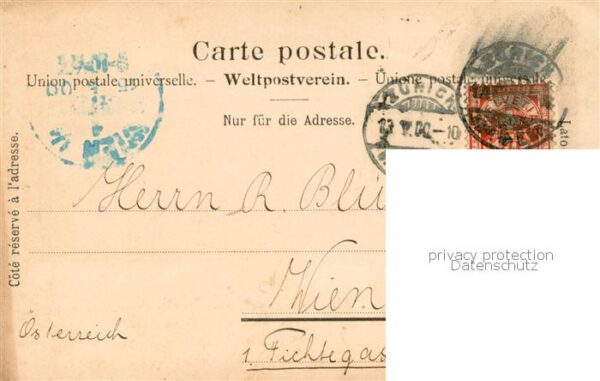 Carte postale.
Union postale universelle. – Weltpostverein. – Unione postale universale
Nur für die Adresse.
ZÜRICH
13 V.00.-10
Côté réservé à l'adresse.
Lato
Herrn R. Blü
Wien
Österreich
1. Fichtegas
privacy protection
Datenschutz